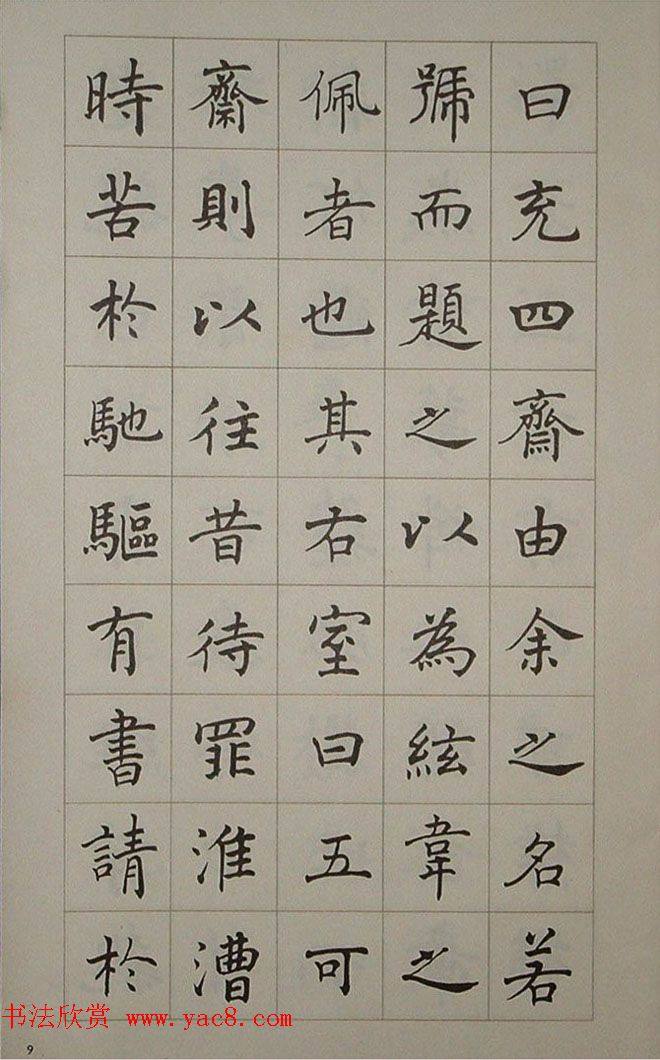 曰充四齋由余之名若
號而題之以為絃韋之
佩者也其右室曰五可
齋則以往昔待罪淮漕
時苦於馳驅有書請於
书法欣赏 www.yac8.com
9